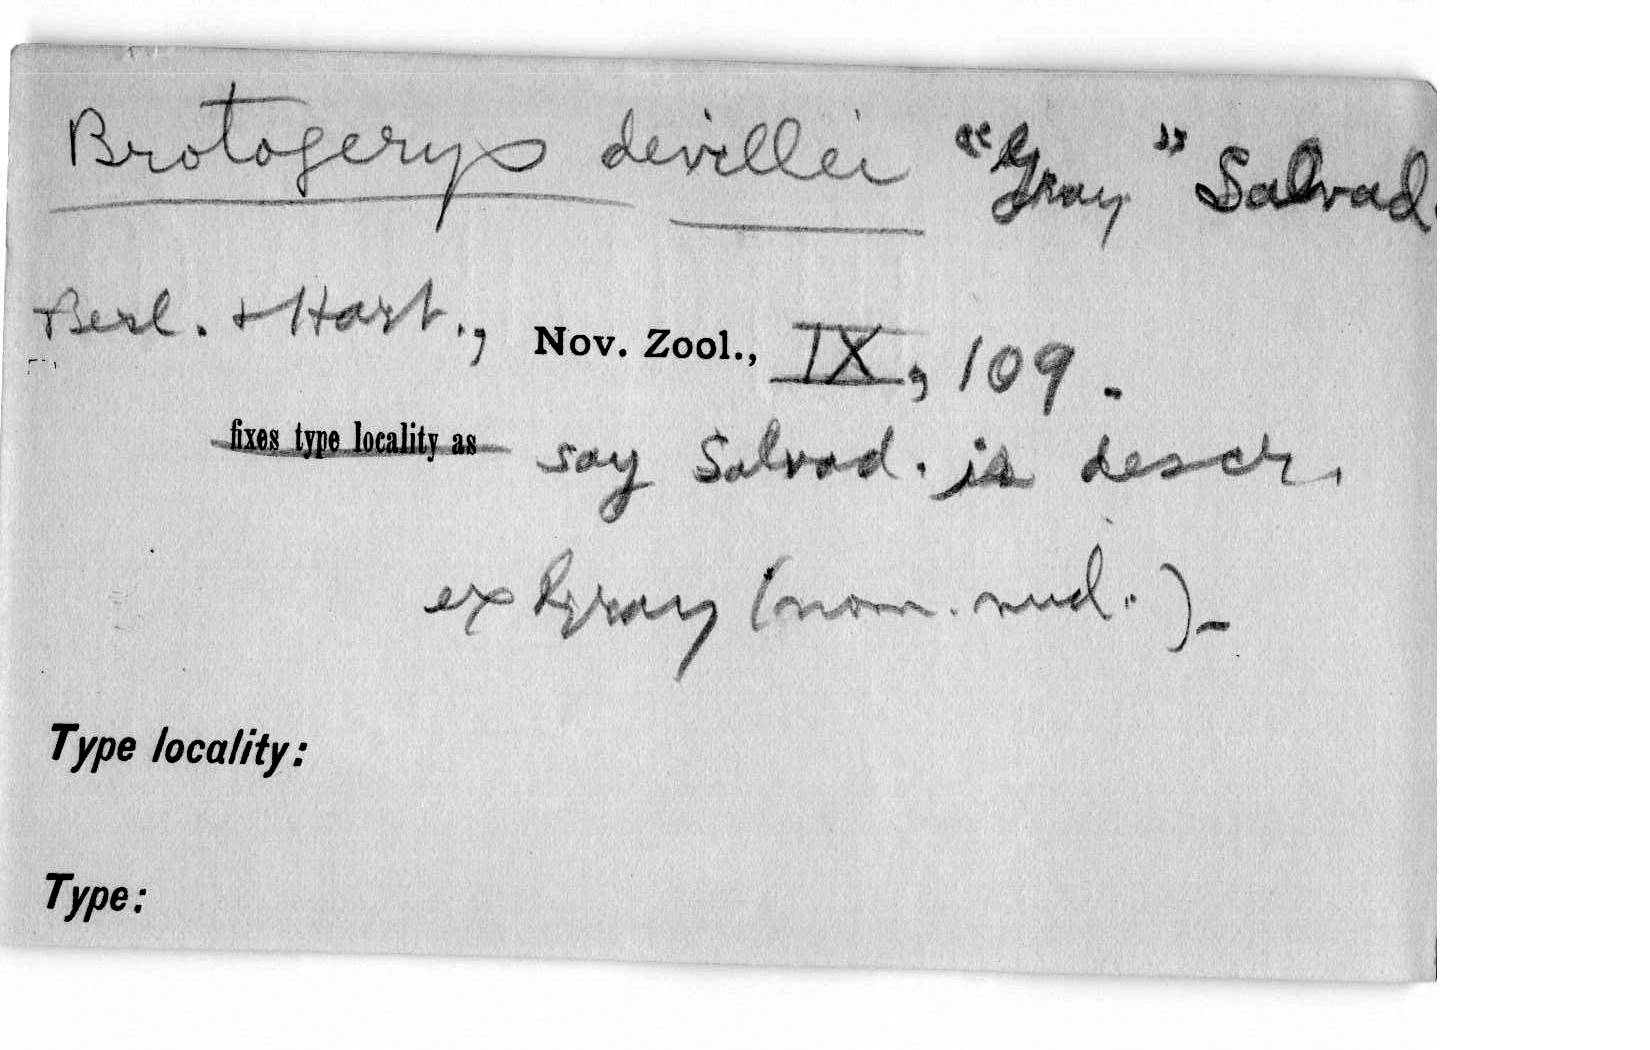 Brotogerys devillei "Gray" Salvad.
Berl. + Hart., Nov. Zool., IX, 109.
fixes type locality as say Salvad. is descr.
ex Gray (nom. nud.)-
Type locality:
Type: